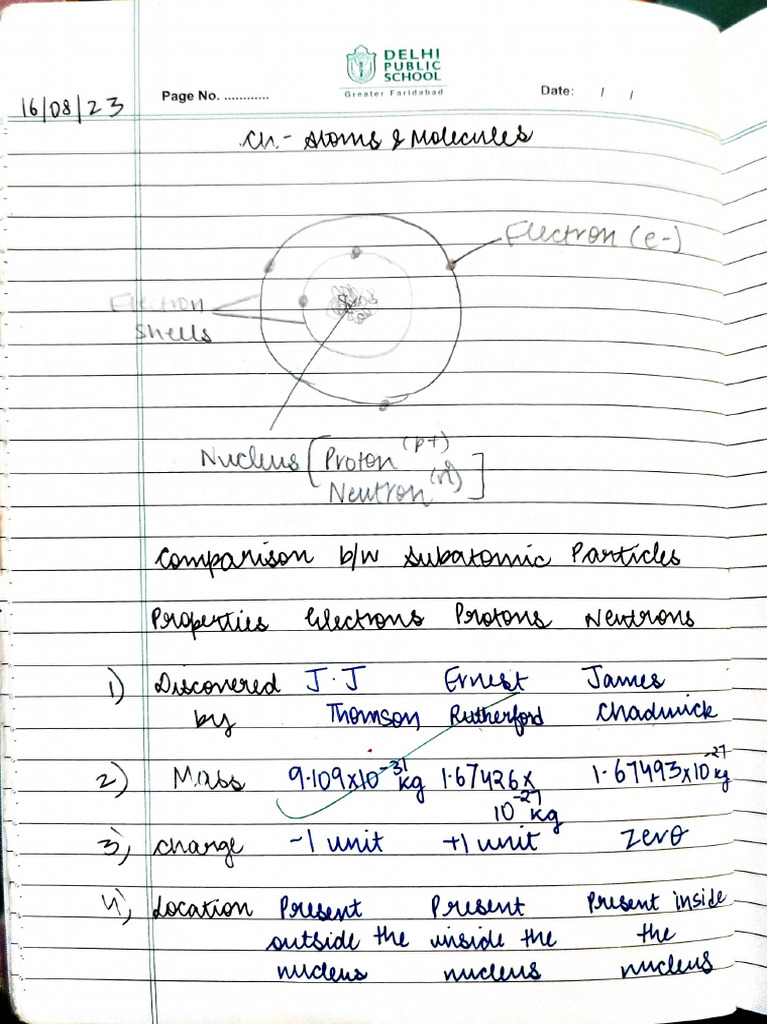 DELHI
PUBLIC
SCHOOL
Greater Faridabad
16/08/23
Page No. ............
Date: / /
Ch- Atoms & Molecules
Electron (e-)
Electron
shells
Nucleus [Proton (p+)
Neutron (n°)]
Comparison b/w Subatomic Particles
Properties Electrons Protons Neutrons
1) Discovered J.J Ernest James
by Thomson Rutherford Chadwick
2) Mass 9.109x10⁻³¹ kg 1.67426x 1.67493x10⁻²⁷ kg
10⁻²⁷ kg
3) Charge -1 unit +1 unit Zero
4) Location Present Present Present inside
outside the inside the the
nucleus nucleus nucleus